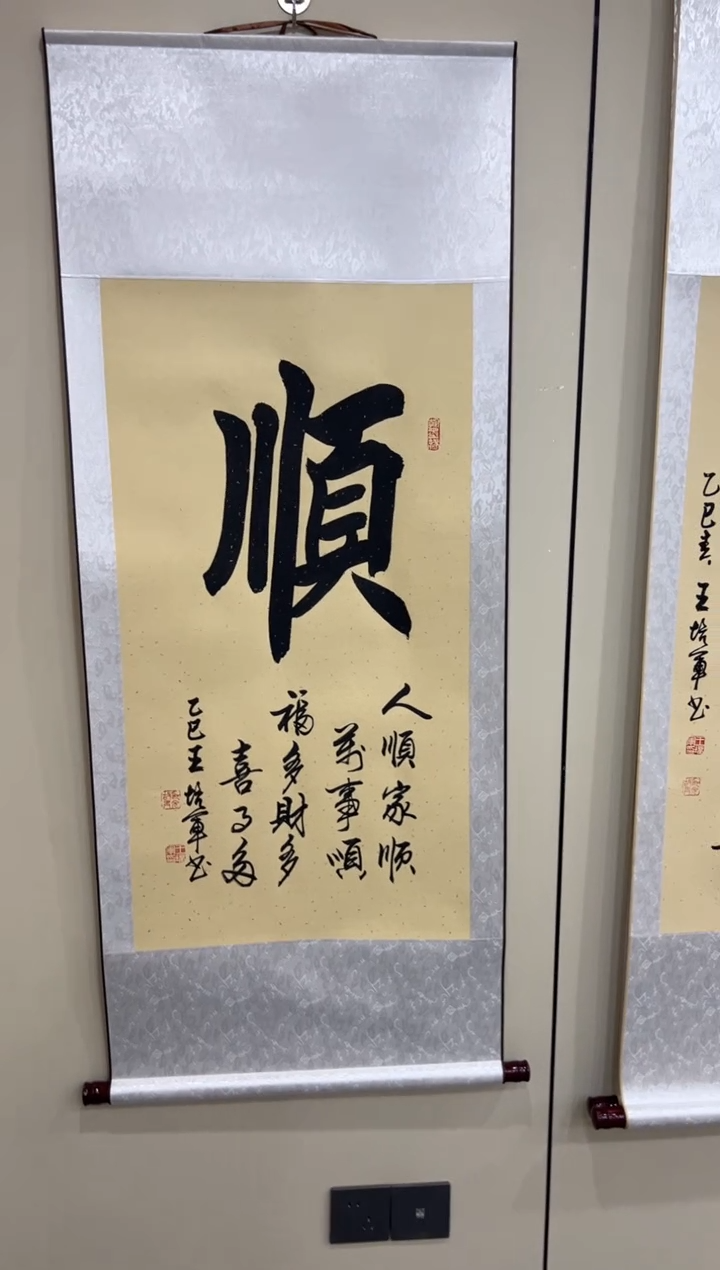 順
人順家顺
萬事順
福多財多
喜事多
乙巳王培軍书
乙巳春王培軍书